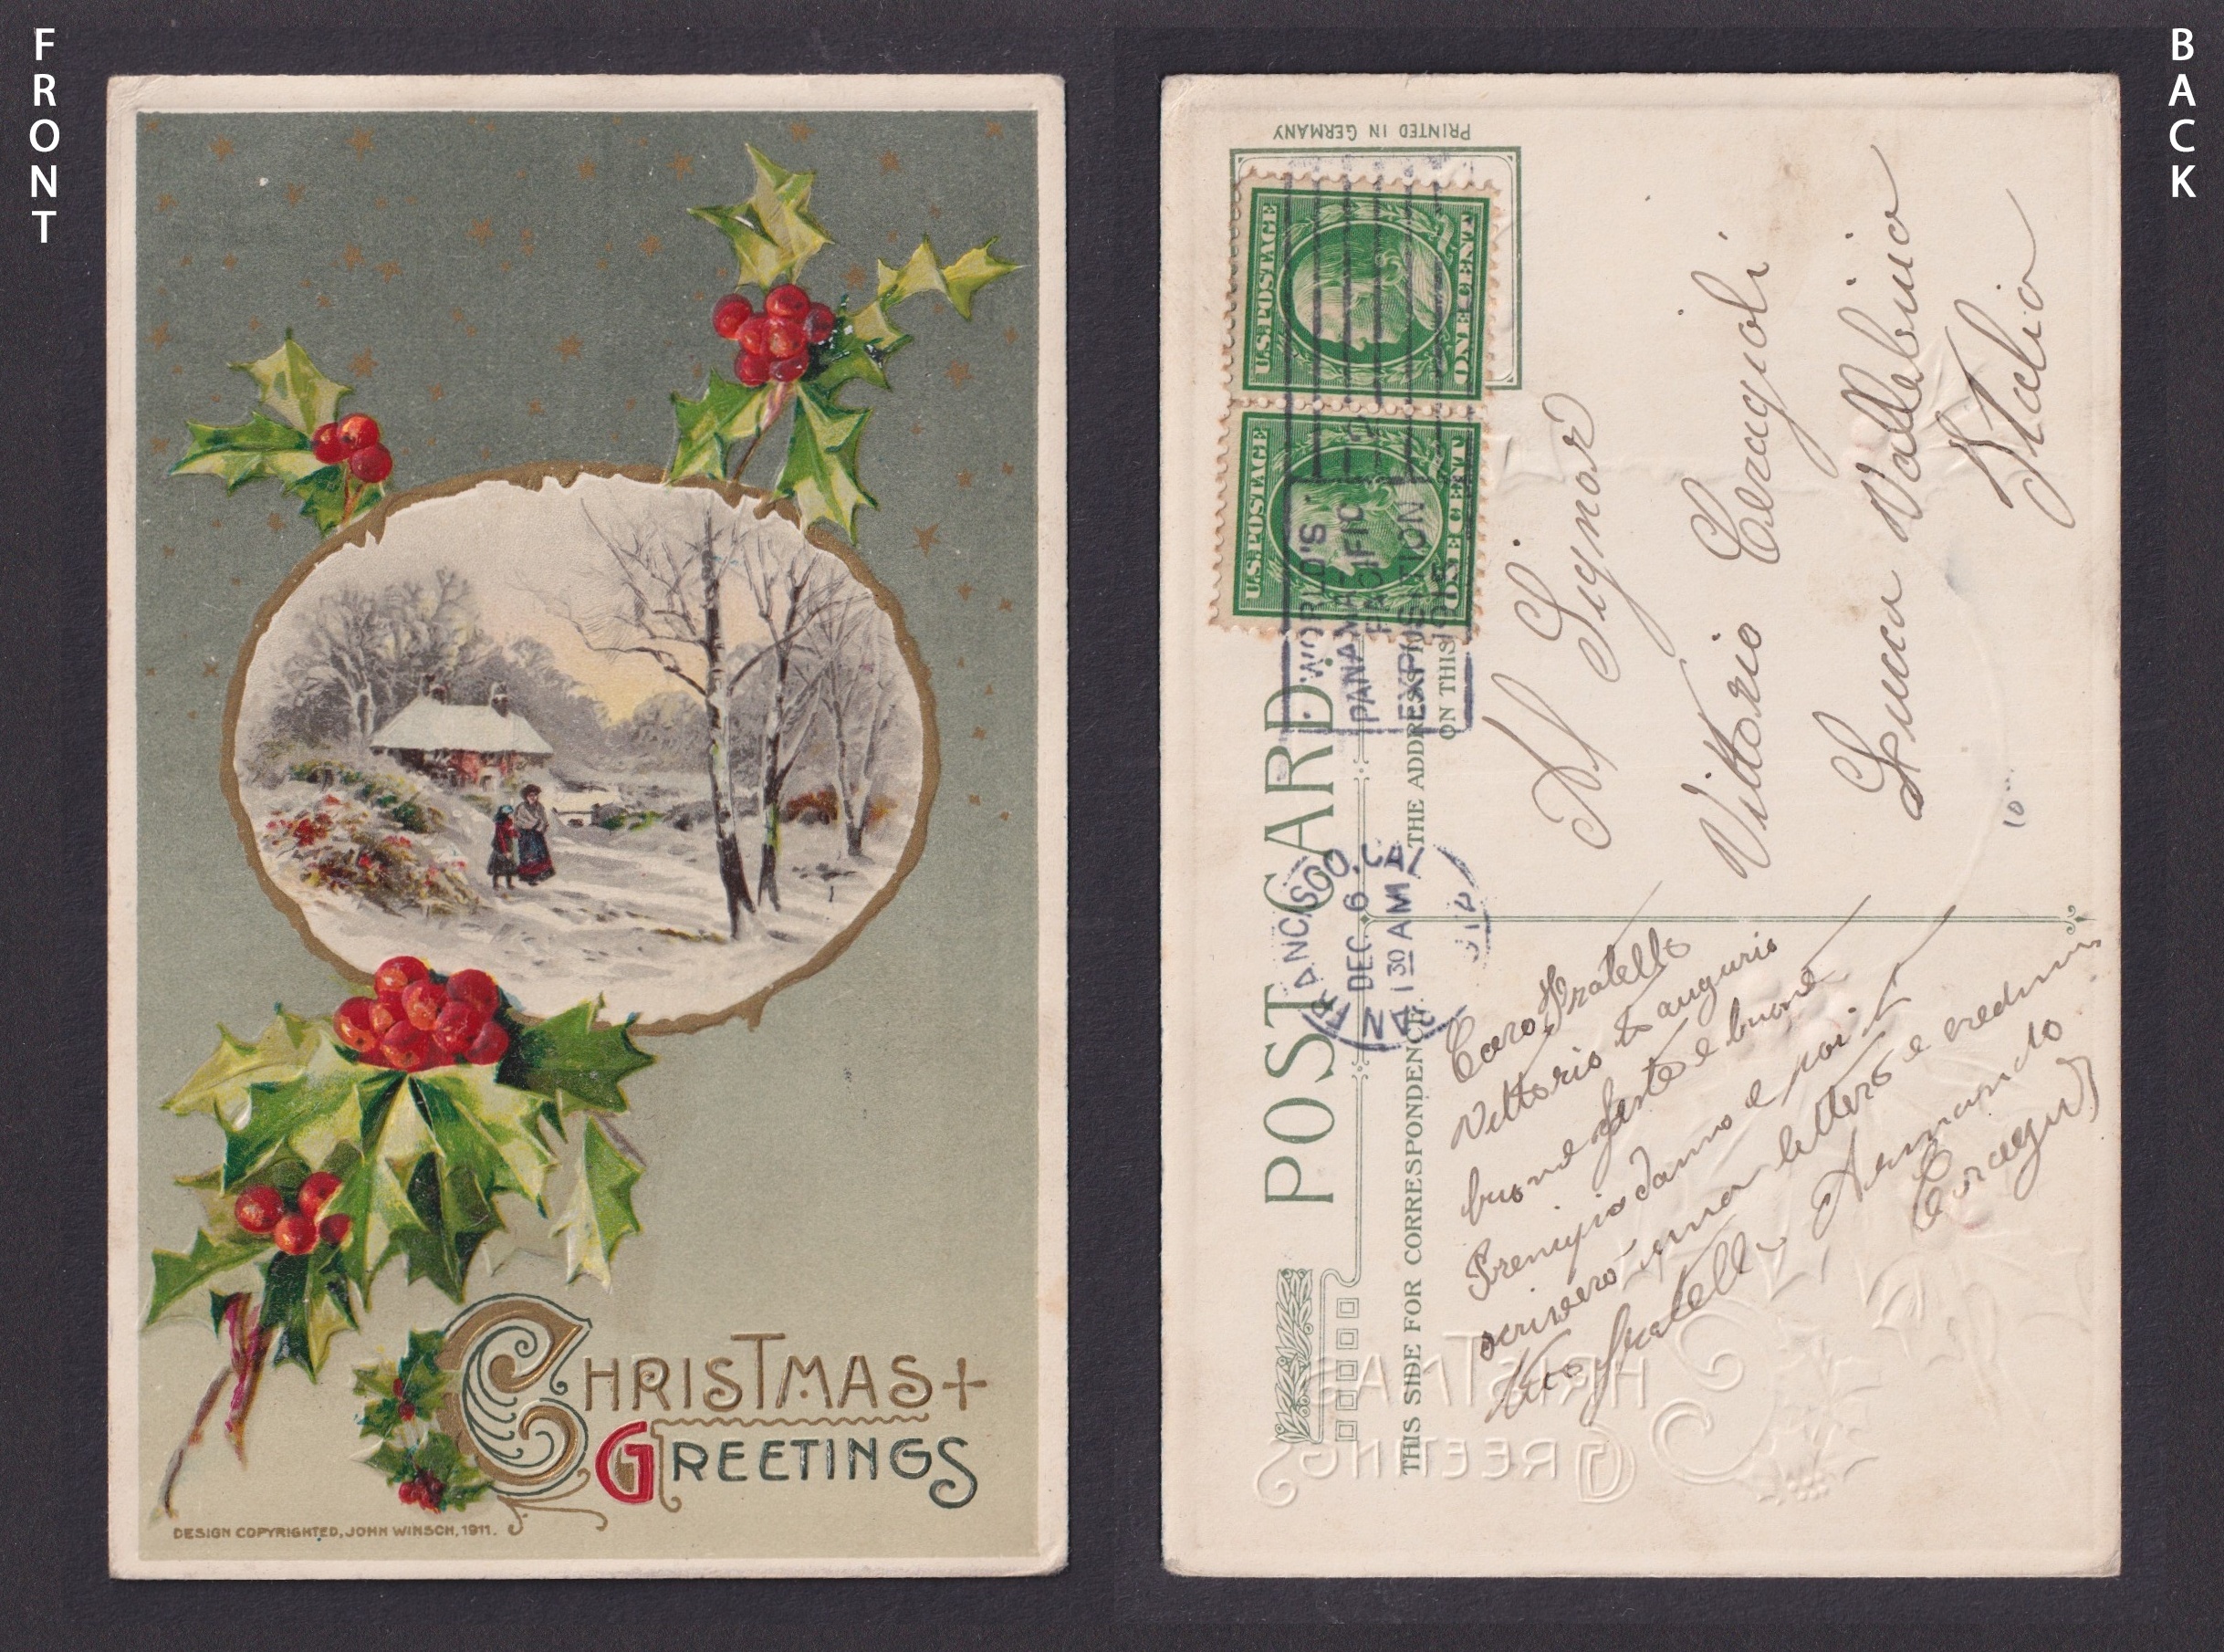 FRONT
BACK
CHRISTMAS
GREETINGS
DESIGN COPYRIGHTED, JOHN WINSCH, 1911.
PRINTED IN GERMANY
U.S. POSTAGE
ONE CENT
U.S. POSTAGE
ONE CENT
WORLD'S
PANAMA-PACIFIC
EXPOSITION
1915
2
SAN FRANCISCO, CAL.
DEC. 6
1 30 AM
POST CARD
THIS SIDE FOR CORRESPONDENCE
THE ADDRESS
ON THIS
Al Signor
Vittorio Ceragioli
Lucca Vallebuio
Italia
10
Caro Fratello
Vittorio ti augurio
buone feste e buone
Prencipio danno e poi ti
scrivero una lettera e
tuo fratello Armando